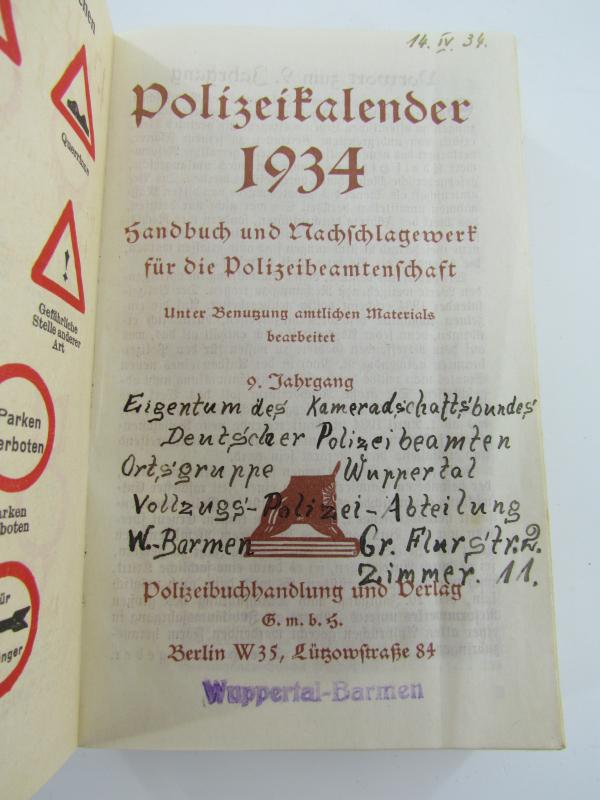 chen
Querrinne
Gefährliche
Stelle anderer
Art
Parken
erboten
arken
boten
ür
nger
14. IV. 34.
Polizeikalender
1934
Handbuch und Nachschlagewerk
für die Polizeibeamtenschaft
Unter Benutzung amtlichen Materials
bearbeitet
9. Jahrgang
Eigentum des Kameradschaftsbundes
Deutscher Polizeibeamten
Ortsgruppe Wuppertal
Vollzugs-Polizei-Abteilung
W.-Barmen Gr. Flurstr. 2.
Zimmer. 11.
Polizeibuchhandlung und Verlag
G. m. b. H.
Berlin W 35, Lützowstraße 84
Wuppertal-Barmen